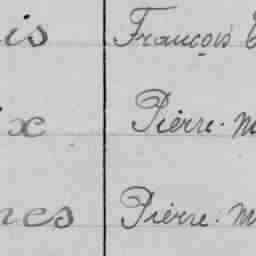 is François
ix Pierre. M
nes Pierre. M